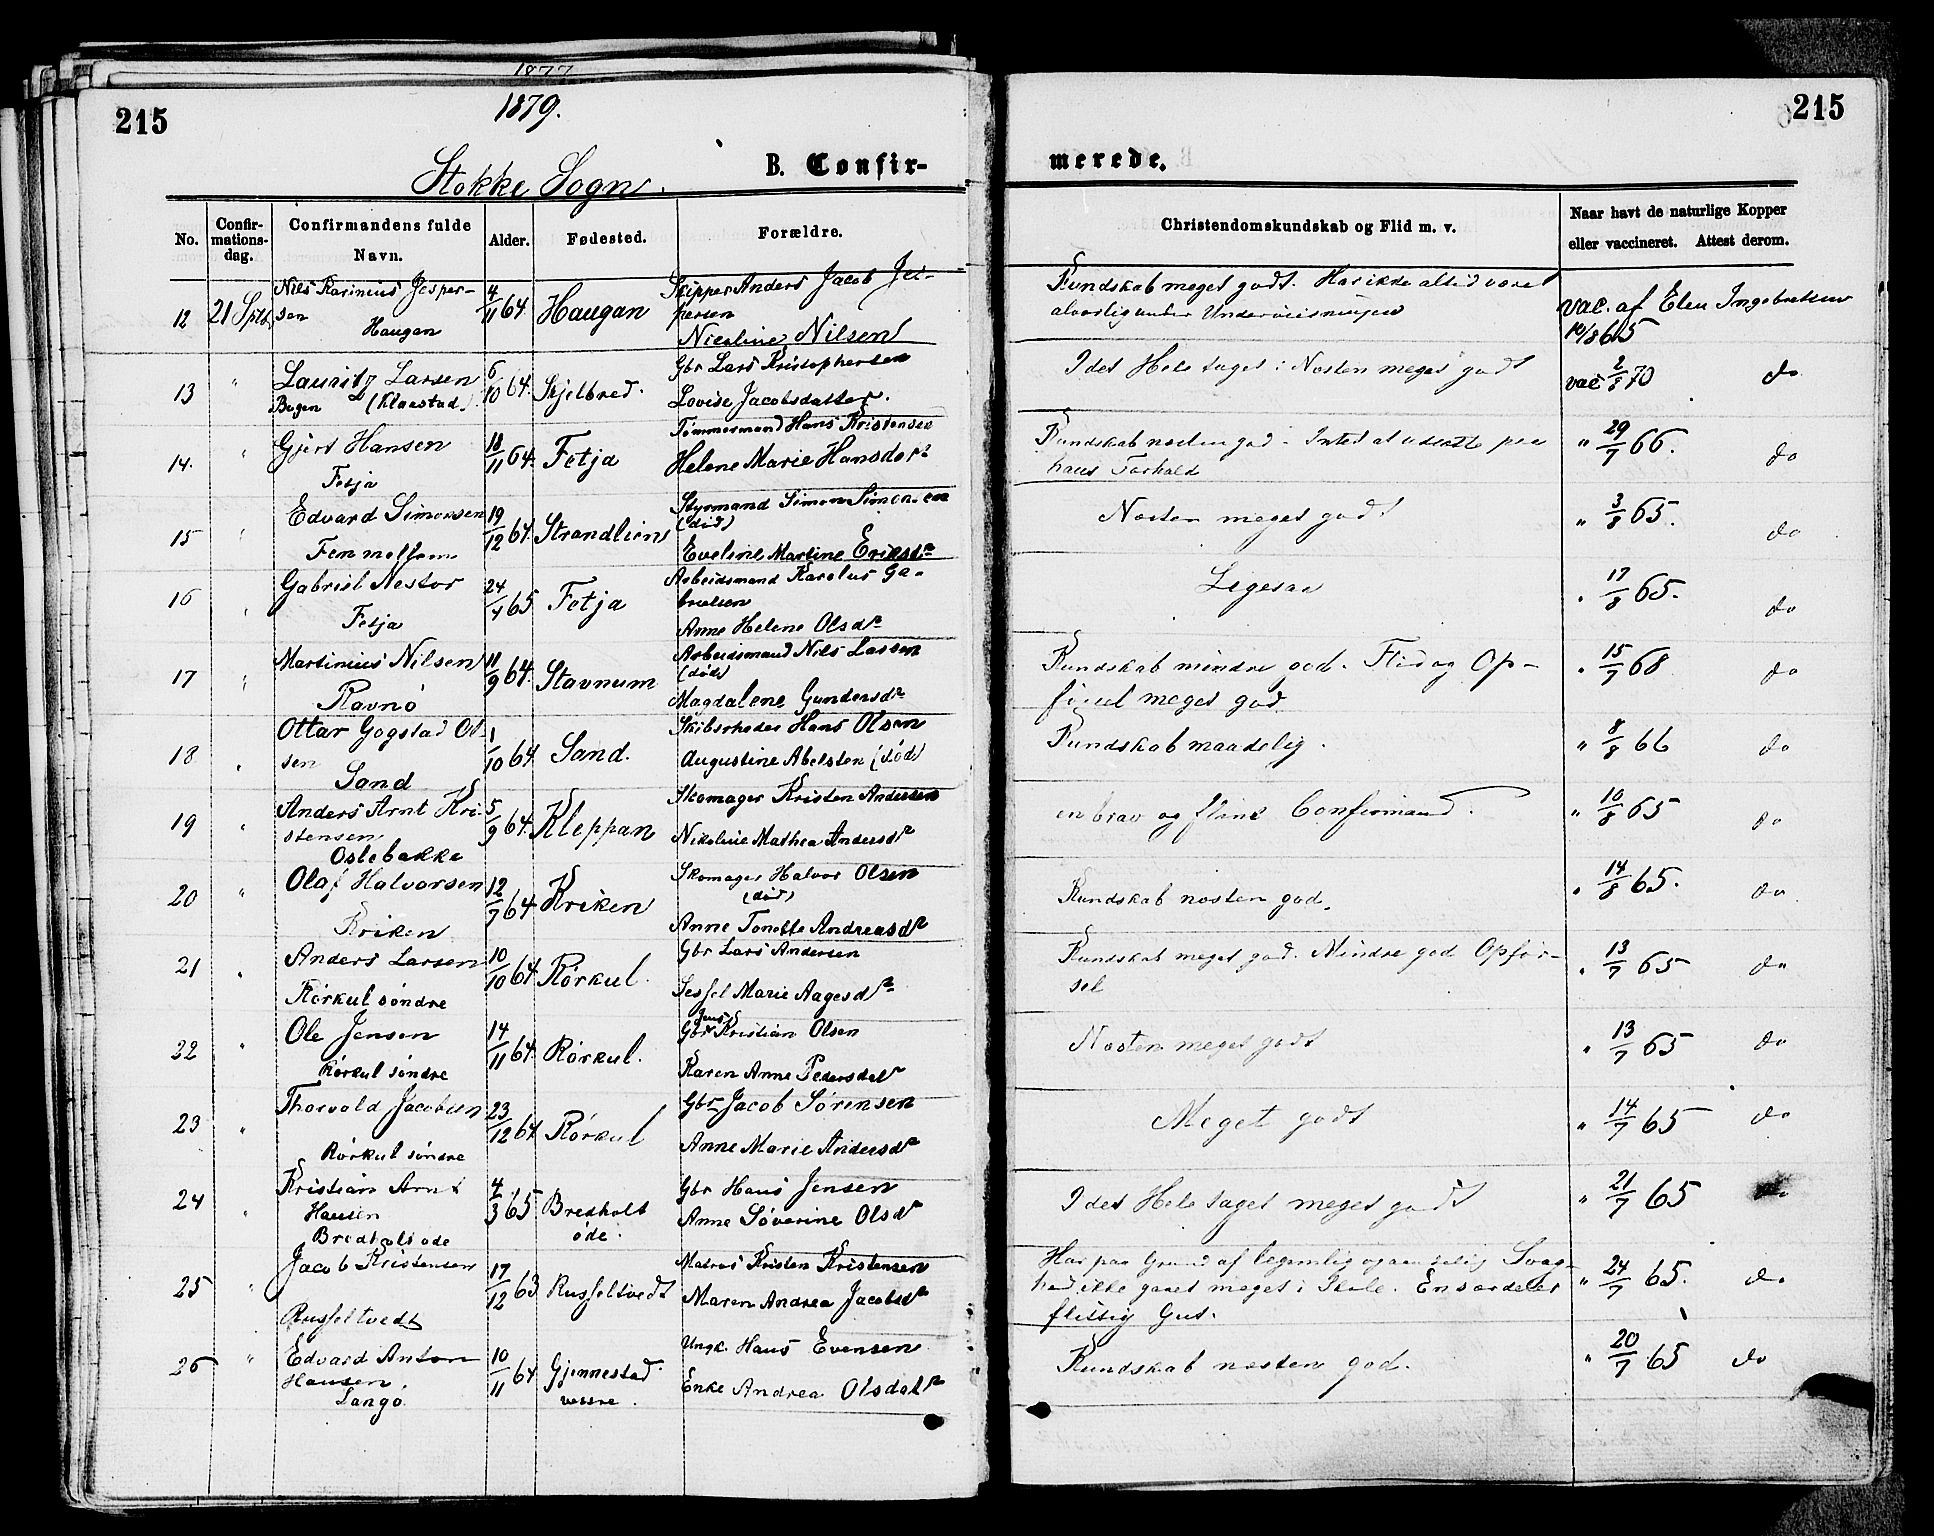 1877
215
1879.
215
Stokke Sogn.
B. Confir-
merede.
No.
Confirmations-dag.
Confirmandens fulde Navn.
Alder.
Fødested.
Forældre.
Christendomskundskab og Flid m. v.
Naar havt de naturlige Kopper eller vaccineret. Attest derom.
12 21 Septb. Nils Karinius Jespersen Haugan 4/11 64. Haugan Skipper Anders Jacob Jespersen
Nicoline Nilsen
Kundskab meget godt. Har ikke altid været
alvorlig under Underviisningen
vac. af Elen Ingebretsen
10/8 65
13 " Lauritz Larsen
Bogen (Klaastad) 6/10 64. Skjelbred. Gbr Lars Kristophersen
Lovise Jacobsdatter.
I det Hele taget: Næsten meget godt
vac 2/8 70 do
14. " Gjert Hansen
Fetja 18/11 64. Fetja Tømmermand Hans Kristensen
Helene Marie Hansdr
Kundskab næsten god. Intet at udsætte paa
hans Forhold
" 29/7 66. do
15 " Edvard Simonsen
Fenmellem 19/12 64. Strandlien Styrmand Simon Simonsen
(død)
Eveline Martine Eriksdr
Næsten meget godt
" 3/8 65. do
16 " Gabriel Nestor
Fetja 24/4 65 Fetja Arbeidsmand Karolus Gabrielsen
Anne Helene Olsdr
Ligesaa
" 17/8 65. do
17 " Martinius Nilsen
Ravnø 11/9 64. Stavnum Arbeidsmand Nils Larsen
(død)
Magdalene Gundersdr
Kundskab mindre god. Flid og Opførsel meget god
" 15/7 68 do
18 " Ottar Gogstad Olsen
Sand 1/10 64 Sand. Skibsrheder Hans Olsen
Augustine Abelsten (død)
Kundskab maadelig.
" 8/8 66 do
19 " Anders Arnt Kristensen
Ostebakke 5/9 64. Kleppan Skomager Kristen Andersen
Nikoline Mathea Andersdr
en brav og flink Confirmand.
" 10/8 65 do
20 " Olaf Halvorsen
Kriken 12/7 64 Kriken Skomager Halvor Olsen
(død)
Anne Tonette Andreasdr
Kundskab næsten god.
" 14/8 65. do
21 " Anders Larsen
Rørkul søndre 10/10 64 Rørkul. Gbr Lars Andersen
Sessel Marie Aagesdr
Kundskab meget god. Mindre god Opførsel
" 13/7 65 do
22 " Ole Jensen
Rørkul søndre 14/11 64. Rørkul. Gbr Jens Kristian Olsen
Karen Anne Pedersdatr
Næsten meget godt
" 13/7 65 do
23 " Thorvald Jacobsen
Rørkul søndre 23/12 64 Rørkul Gbr Jacob Sørensen
Anne Marie Andersdr
Meget godt
" 14/7 65 do
24 " Kristian Arnt
Hansen
Bredholt øde 4/3 65 Bredholt
øde. Gbr Hans Jensen
Anne Søverine Olsdr
I det Hele taget meget godt
" 21/7 65 do
25 " Jacob Kristensen
Russeltvedt 17/12 63 Russeltvedt Matros Kristen Kristensen
Maren Andrea Jacobsdr
Har paa Grund af legemlig og aandelig Svaghed ikke gaaet meget i Skole. En særdeles
flittig Gut.
" 24/7 65. do
26 " Edvard Anton
Hansen.
Langø. 10/11 64 Gjennestad
vestre. Ungk. Hans Evensen
Enke Andrea Olsdatr
Kundskab næsten god.
" 20/7 65 do